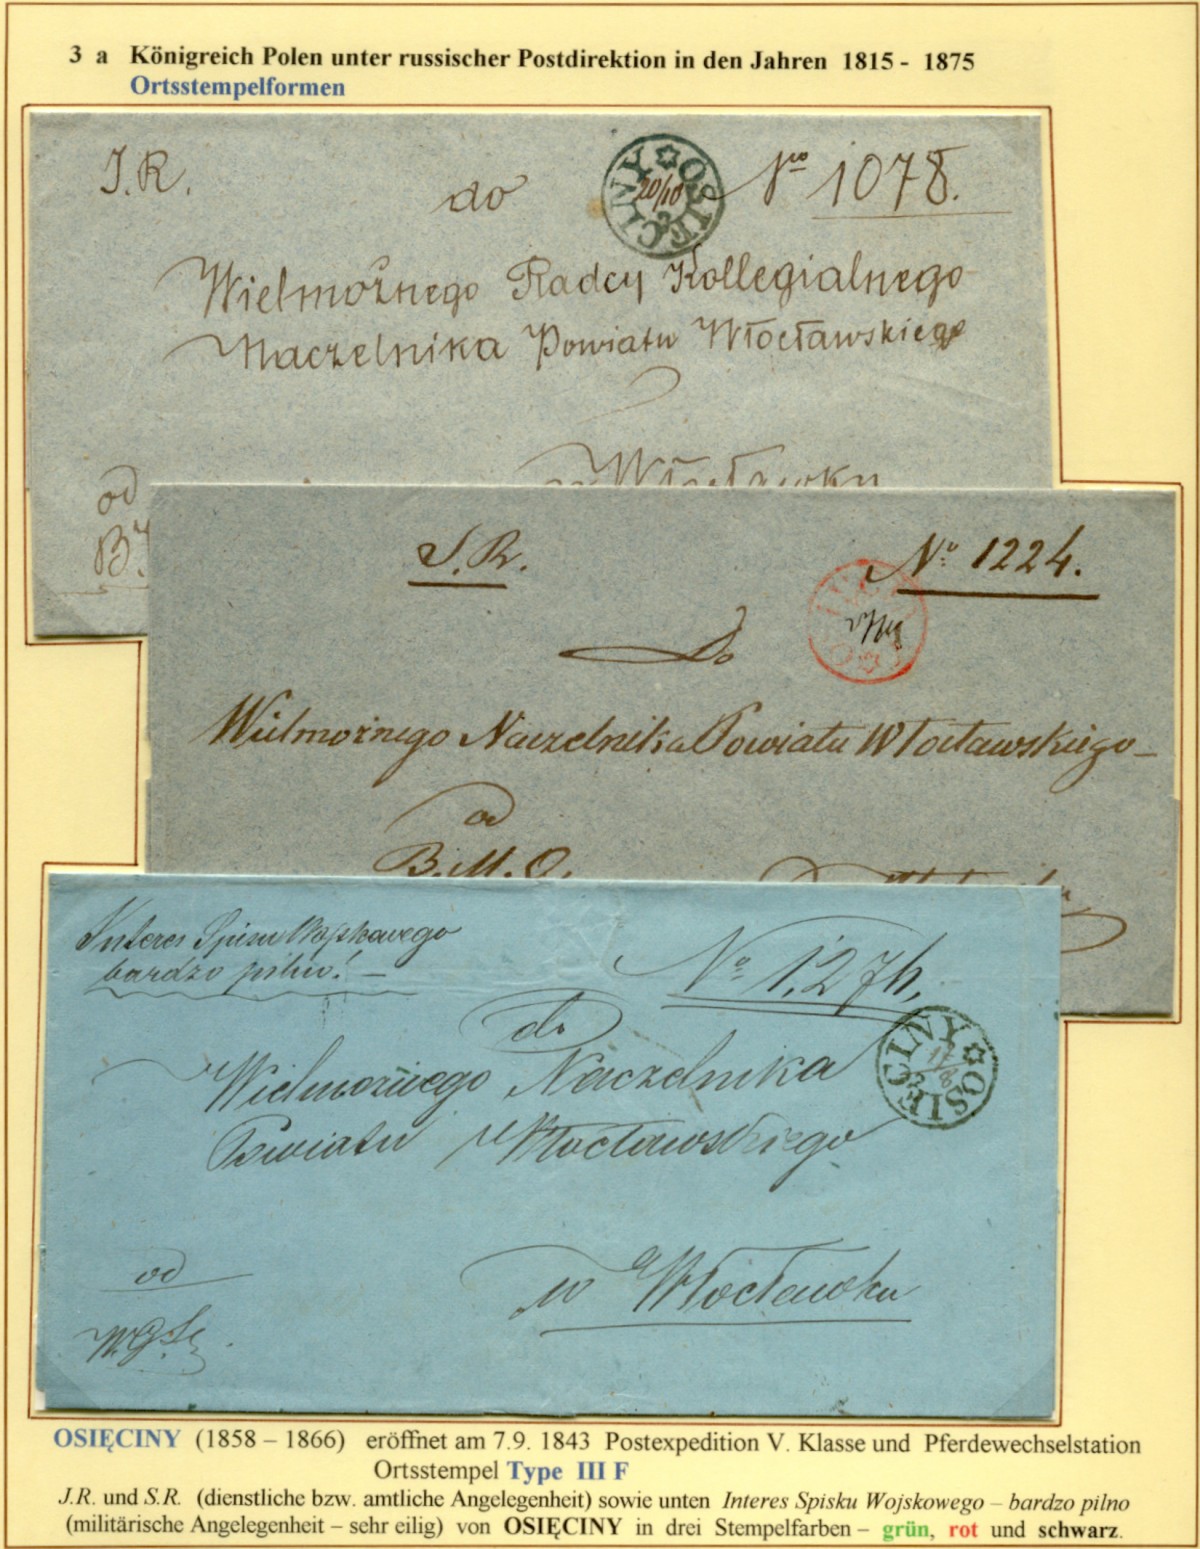 3 a Königreich Polen unter russischer Postdirektion in den Jahren 1815 - 1875
Ortsstempelformen
J.R.
do
OSIĘCINY
20/10
No 1078.
Wielmożnego Radcy Kollegialnego
Naczelnika Powiatu Włocławskiego
w Włocławku
od
S.R.
No 1224.
Do
Wielmożnego Naczelnika Powiatu Włocławskiego
od
B.M.O.
Interes Spisu Wojskowego
bardzo pilno! –
No 1,274.
do
OSIĘCINY
Wielmożnego Naczelnika
Powiatu Włocławskiego
w Włocławku
od
OSIĘCINY (1858 – 1866) eröffnet am 7.9. 1843 Postexpedition V. Klasse und Pferdewechselstation
Ortsstempel Type III F
J.R. und S.R. (dienstliche bzw. amtliche Angelegenheit) sowie unten Interes Spisku Wojskowego – bardzo pilno
(militärische Angelegenheit – sehr eilig) von OSIĘCINY in drei Stempelfarben – grün, rot und schwarz.